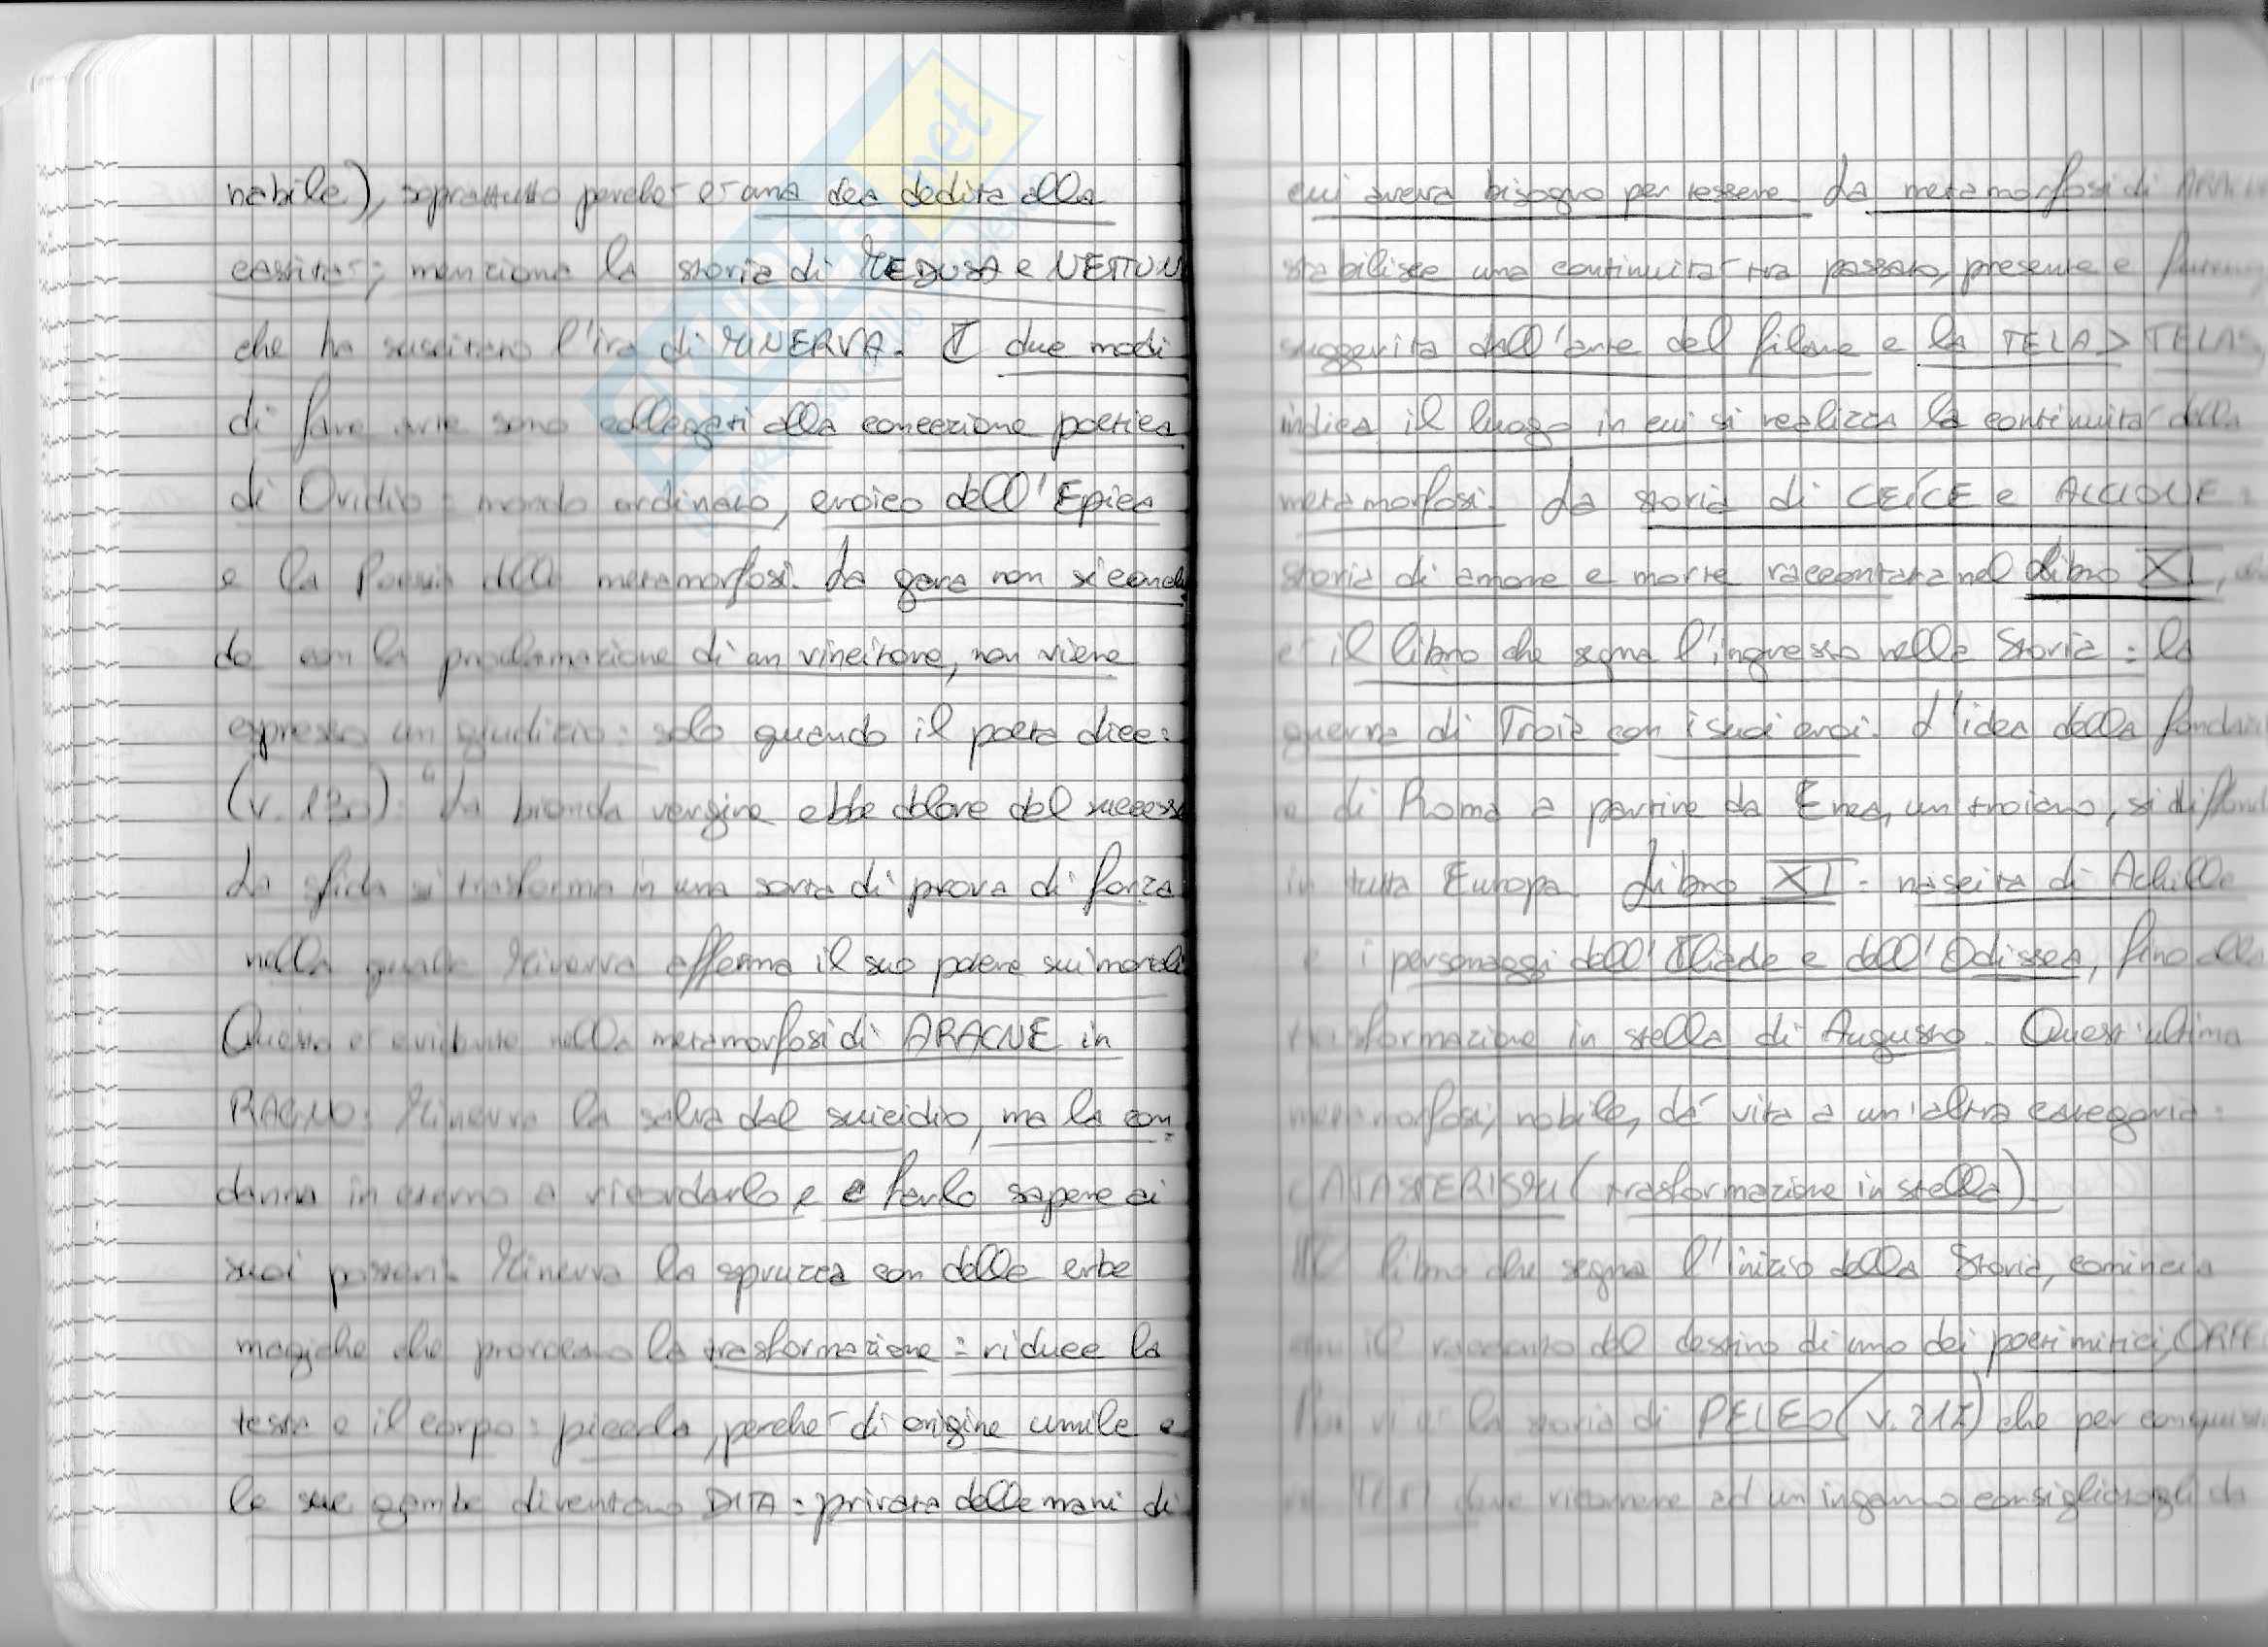 nabile), soprattutto perche' e' una dea dedita alla
castita'; menziona la storia di MEDUSA e NETTUN
che ha suscitato l'ira di MINERVA. I due modi
di fare arte sono collegati alla concezione poetica
di Ovidio: mondo ordinato, eroico dell'Epica
e la Poesia delle metamorfosi. La gara non si conclu
de con la proclamazione di un vincitore, non viene
espresso un giudizio: solo quando il poeta dice:
(v. 130): "La bionda vergine ebbe dolore del success
La sfida si trasforma in una sorta di prova di forza
nella quale Minerva afferma il suo potere sui mortali
Questo e' evidente nella metamorfosi di ARACNE in
RAGNO: Minerva la salva dal suicidio, ma la con=
danna in eterno a ricordarlo e a farlo sapere ai
suoi posteri. Minerva la spruzza con delle erbe
magiche che provocano la trasformazione: riduce la
testa e il corpo: piccola, perche' di origine umile e
le sue gambe diventano DITA: privata delle mani di
cui aveva bisogno per tessere. La metamorfosi di ARACNE
stabilisce una continuita' tra passato, presente e futuro
suggerita dall'arte del filare e la TELA > TELAS,
indica il luogo in cui si realizza la continuita' della
metamorfosi. La storia di CEICE e ALCIONE:
storia di amore e morte raccontata nel Libro XI,
e' il libro che segna l'ingresso nella Storia: la
guerra di Troia con i suoi eroi. L'idea della fondazi
e di Roma a partire da Enea, un troiano, si diffond
in tutta Europa. Libro XI: nascita di Achille
e i personaggi dell'Iliade e dell'Odissea, fino alla
trasformazione in stella di Augusto. Quest'ultima
metamorfosi, nobile, da' vita a un'altra categoria:
CATASTERISMI (trasformazione in stella).
Il libro che segna l'inizio della Storia, comincia
con il racconto del destino di uno dei poeti mitici, ORFE
Poi vi e' la storia di PELEO (v. 217) che per conquist
deve ricorrere ad un inganno consigliatogli da
SKUOLA.net